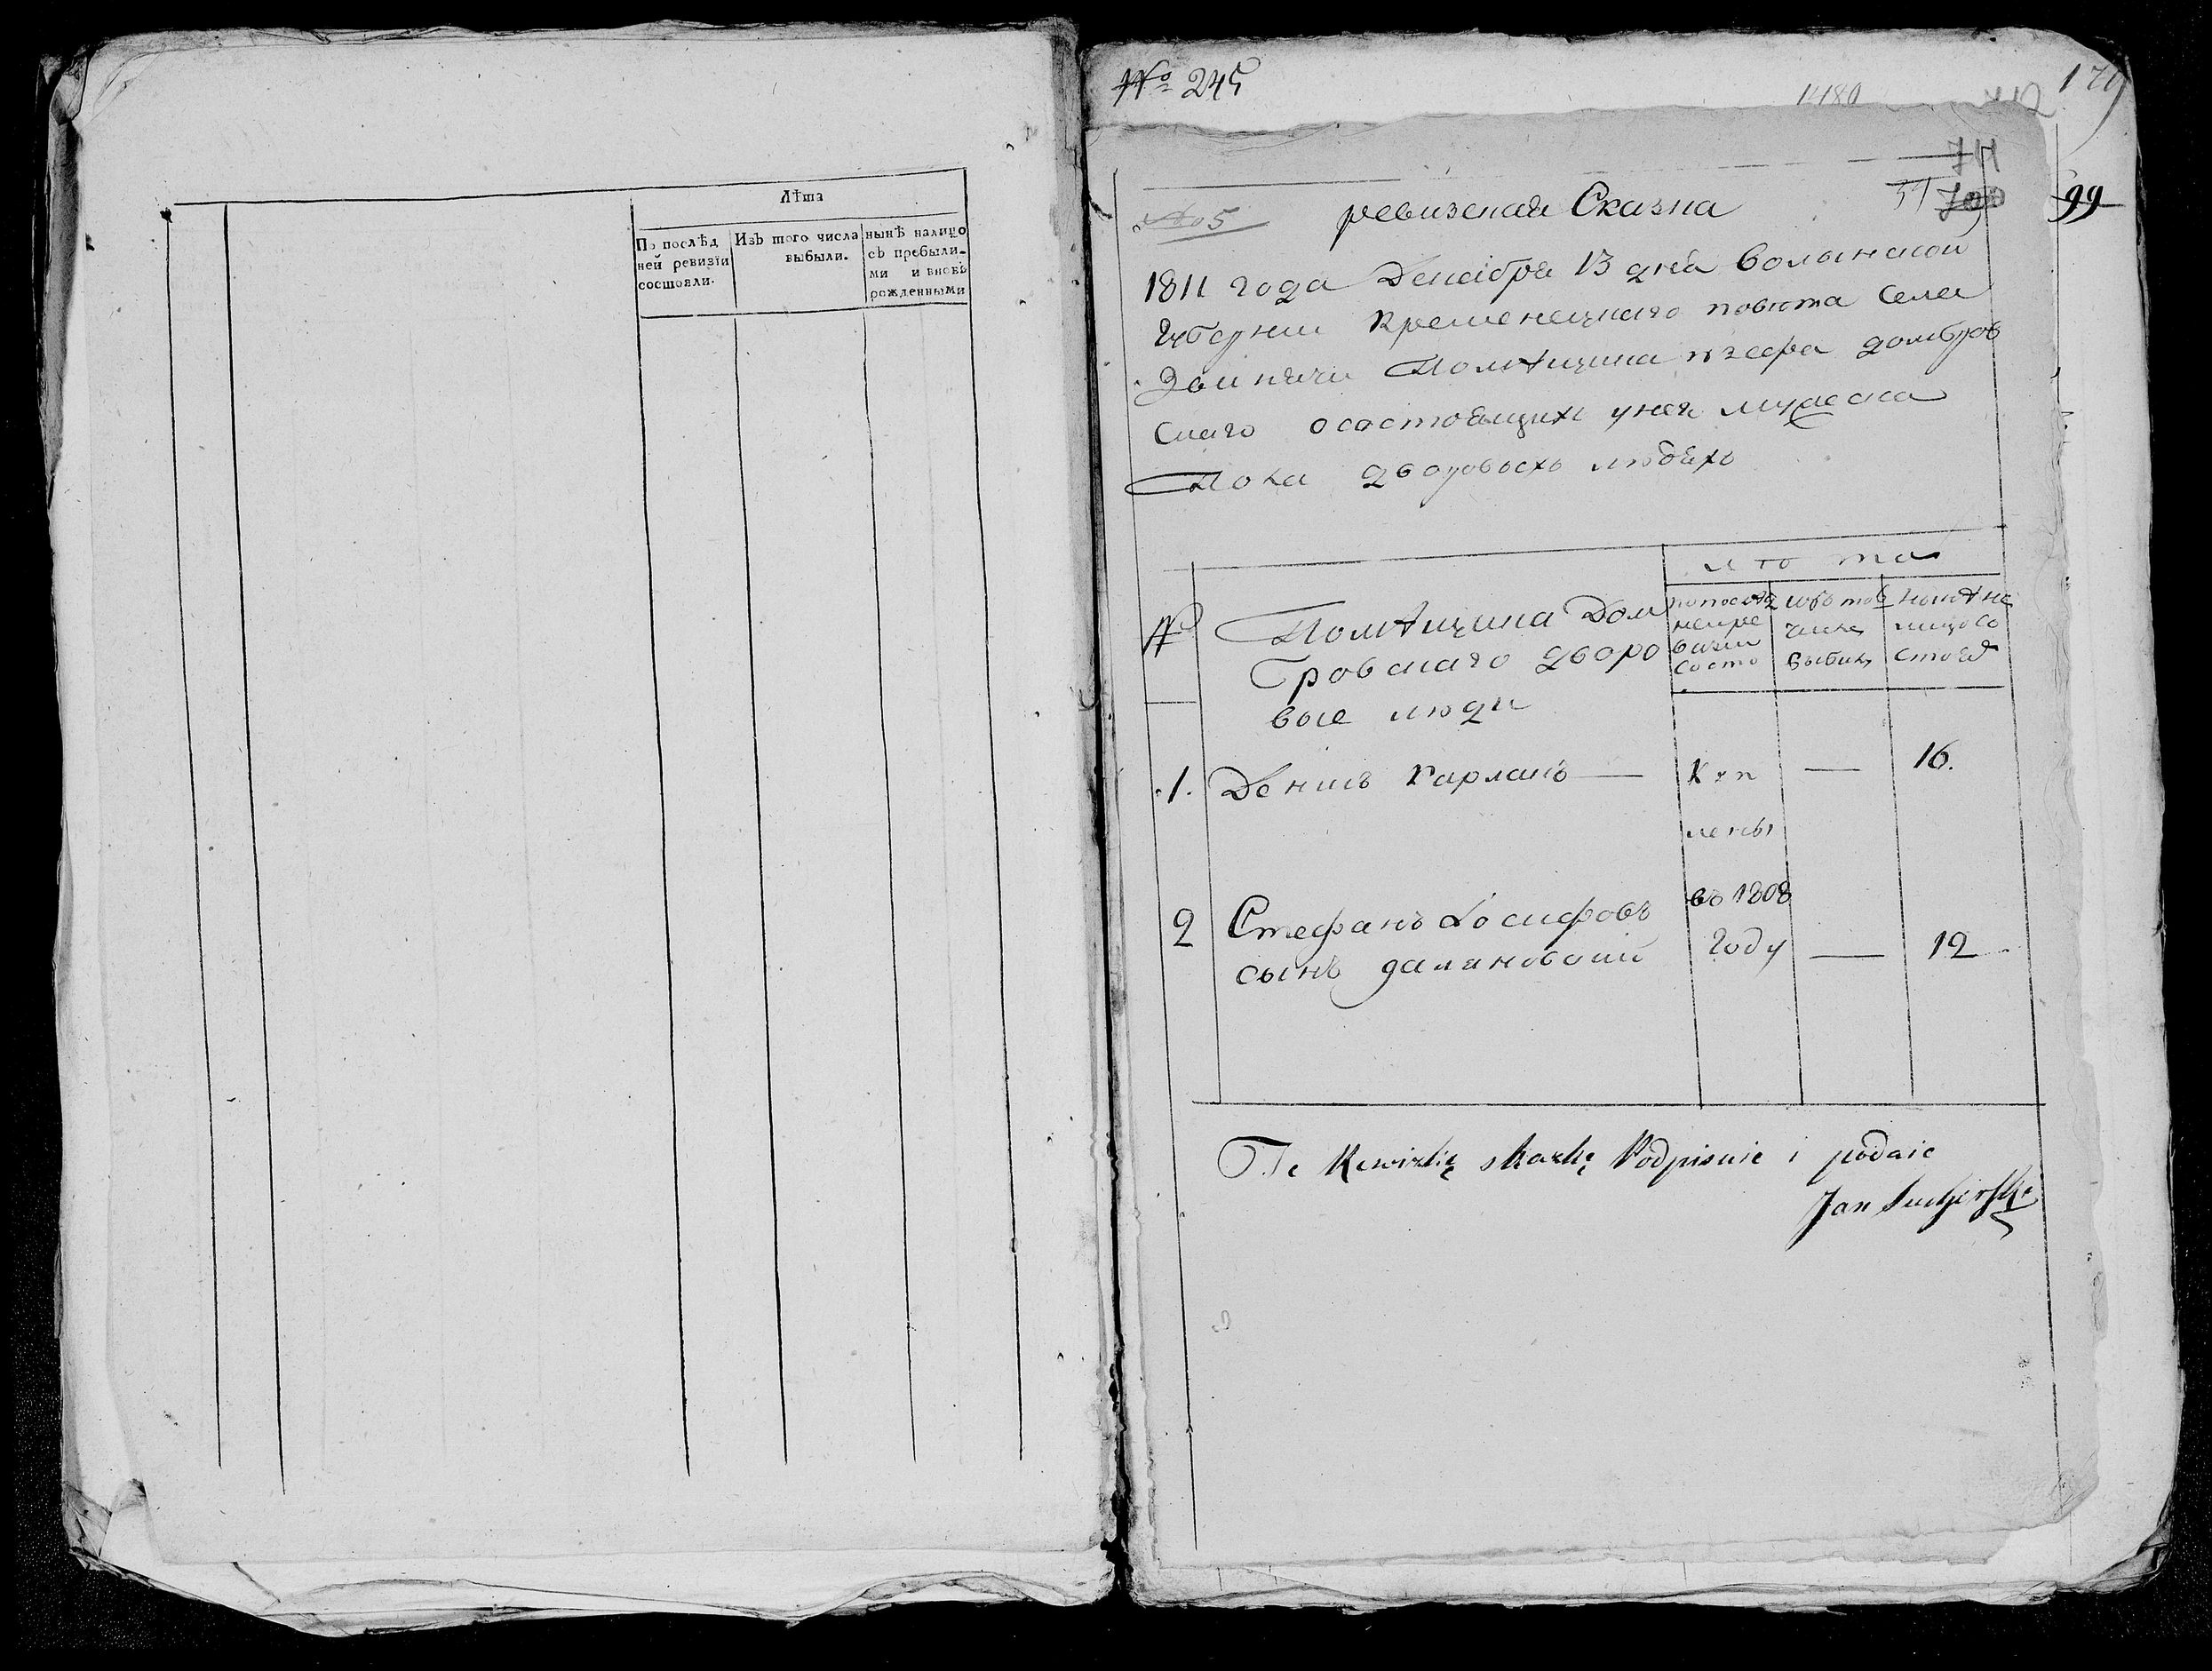 Лѣта
По послѣд
ней ревизїи
состояли.
Изъ того числа
выбыли.
нынѣ налицо
съ прибыли-
ми и вновь
рожденными
№ 245
1480
179
711
700
99
№ 5
ревизская Сказка
1811 года Декабря 13 дня волынской
губернии Кременецкаго повета Села
Помѣщика домбров
скаго осостоящихъ унего мужеска
Пола дворовыхъ людяхъ
лѣта
№
Помѣщика Дом
бровскаго дворо
вые люди
попослѣд
ней ре
визии
состо
изъ тог
числа
выбыл
нынѣ на
лицо со
стоят
1. Денисъ Карланъ — Куп — 16.
лены
2 Стефанъ Іосифовъ
въ 1808
сынъ далановский
году — 12
Te Rewizkię skazkę Podpisuie i podaie
Jan